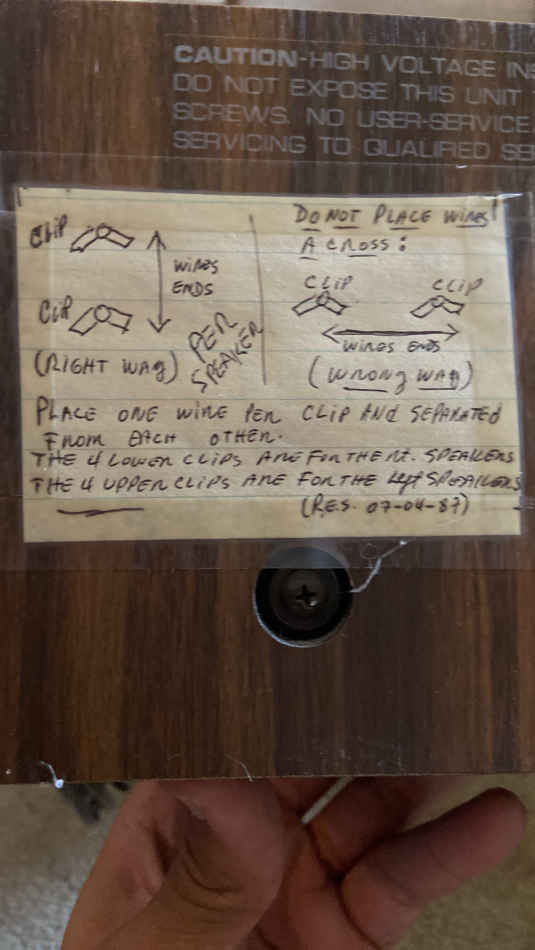 CAUTION-HIGH VOLTAGE
DO NOT EXPOSE THIS UNIT
SCREWS. NO USER-SERVICE
SERVICING TO QUALIFIED
CLIP
WIRES
ENDS
CLIP
(RIGHT WAY)
PER
SPEAKER
DO NOT PLACE WIRES
ACROSS:
CLIP CLIP
WIRES ENDS
(WRONG WAY)
PLACE ONE WIRE PER CLIP ANd SEPARATED
FROM EACH OTHER.
THE 4 LOWER CLIPS ARE FOR THE Rt. SPEAKERS
THE 4 UPPER CLIPS ARE FOR THE Left SPEAKERS
(RES. 07-04-87)